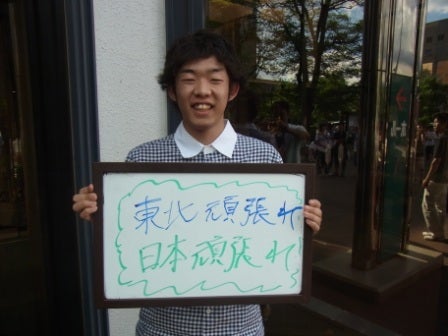 東北頑張れ
日本頑張れ